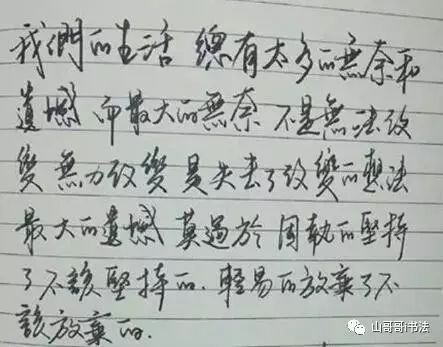 我們的生活 總有太多的無奈和
遺憾 而最大的無奈 不是無法改
變 無力改變 是失去了改變的想法
最大的遺憾 莫過於 固執的堅持
了不該堅持的.輕易的放棄了不
該放棄的.
山哥哥i书法